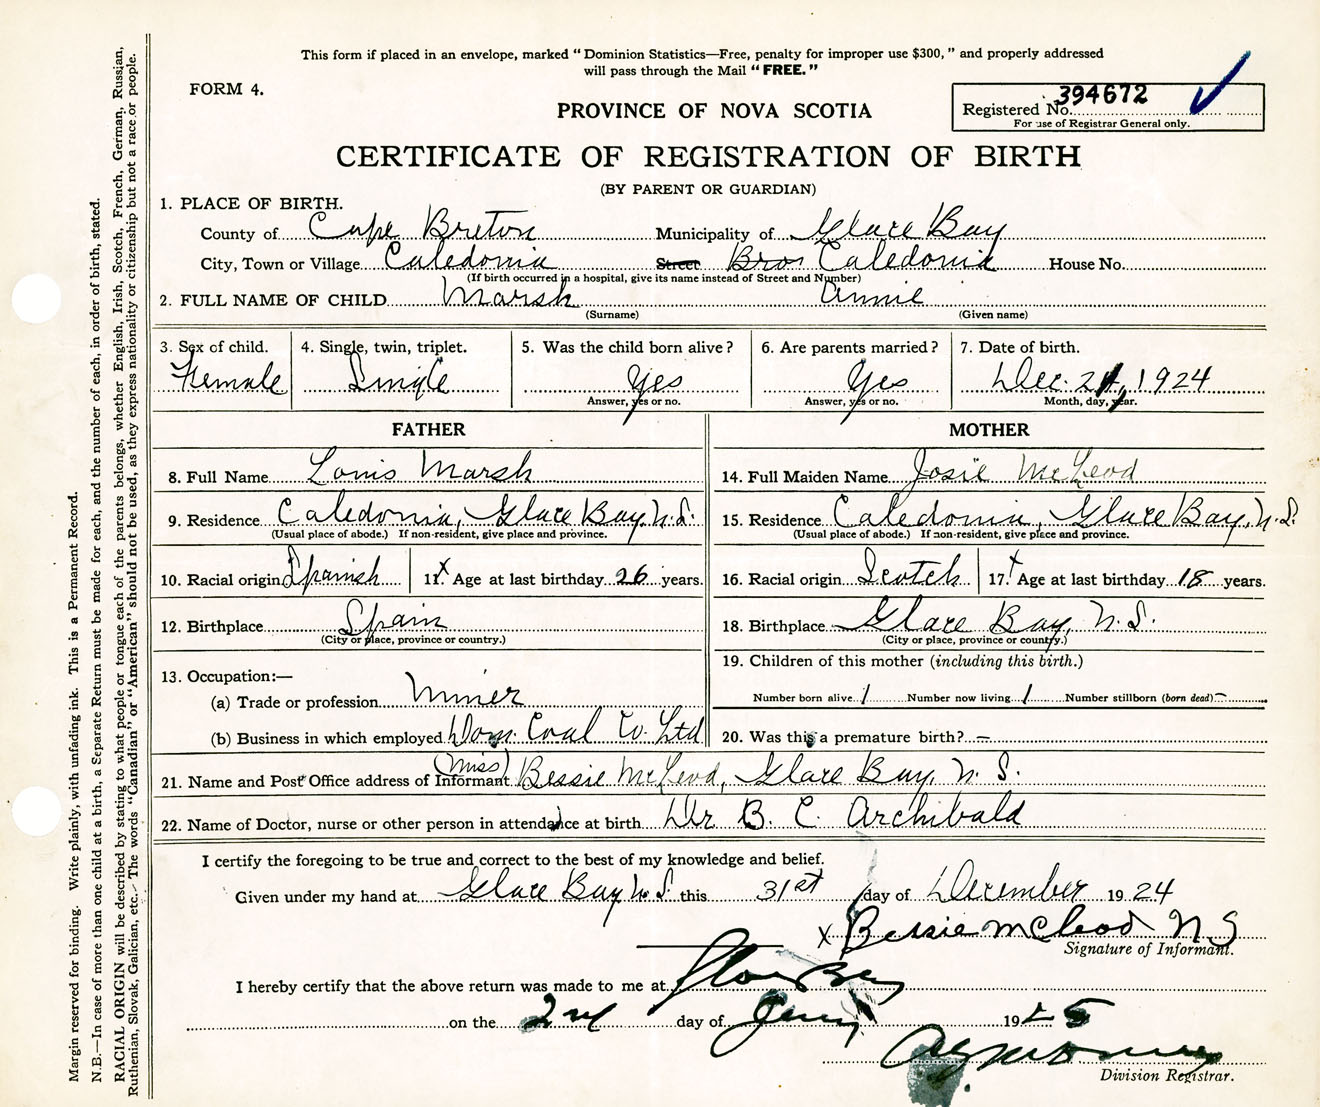 This form if placed in an envelope, marked "Dominion Statistics—Free, penalty for improper use $300," and properly addressed
will pass through the Mail "FREE."
FORM 4.
PROVINCE OF NOVA SCOTIA
Registered No. 394672
For use of Registrar General only.
CERTIFICATE OF REGISTRATION OF BIRTH
(BY PARENT OR GUARDIAN)
1. PLACE OF BIRTH.
County of Cape Breton Municipality of Glace Bay
City, Town or Village Caledonia Street Bros Caledonia House No.
(If birth occurred in a hospital, give its name instead of Street and Number)
2. FULL NAME OF CHILD Marsh Annie
(Surname) (Given name)
3. Sex of child. 4. Single, twin, triplet. 5. Was the child born alive? 6. Are parents married? 7. Date of birth.
Female Single Yes Yes Dec. 21, 1924
Answer, yes or no. Answer, yes or no. Month, day, year.
FATHER MOTHER
8. Full Name Louis Marsh 14. Full Maiden Name Josie McLeod
9. Residence Caledonia, Glace Bay, N.S. 15. Residence Caledonia, Glace Bay, N.S.
(Usual place of abode.) If non-resident, give place and province. (Usual place of abode.) If non-resident, give place and province.
10. Racial origin Spanish 11. x Age at last birthday 26 years. 16. Racial origin Scotch 17. x Age at last birthday 18 years.
12. Birthplace Spain 18. Birthplace Glace Bay, N.S.
(City or place, province or country.) (City or place, province or country.)
13. Occupation:— 19. Children of this mother (including this birth.)
(a) Trade or profession Miner Number born alive 1 Number now living 1 Number stillborn (born dead) –
(b) Business in which employed Dom. Coal Co. Ltd 20. Was this a premature birth? –
21. Name and Post Office address of Informant (Miss) Bessie McLeod, Glace Bay, N.S.
22. Name of Doctor, nurse or other person in attendance at birth Dr B. C. Archibald
I certify the foregoing to be true and correct to the best of my knowledge and belief.
Given under my hand at Glace Bay N.S. this 31st day of December 1924
x Bessie McLeod NS
Signature of Informant.
I hereby certify that the above return was made to me at Glace Bay
on the 2nd day of Jany 1925
Division Registrar.
Margin reserved for binding. Write plainly, with unfading ink. This is a Permanent Record.
N.B.—In case of more than one child at a birth, a Separate Return must be made for each, and the number of each, in order of birth, stated.
RACIAL ORIGIN will be described by stating to what people or tongue each of the parents belongs, whether English, Irish, Scotch, French, German, Russian,
Ruthenian, Slovak, Galician, etc. The words "Canadian" or "American" should not be used, as they express nationality or citizenship but not a race or people.